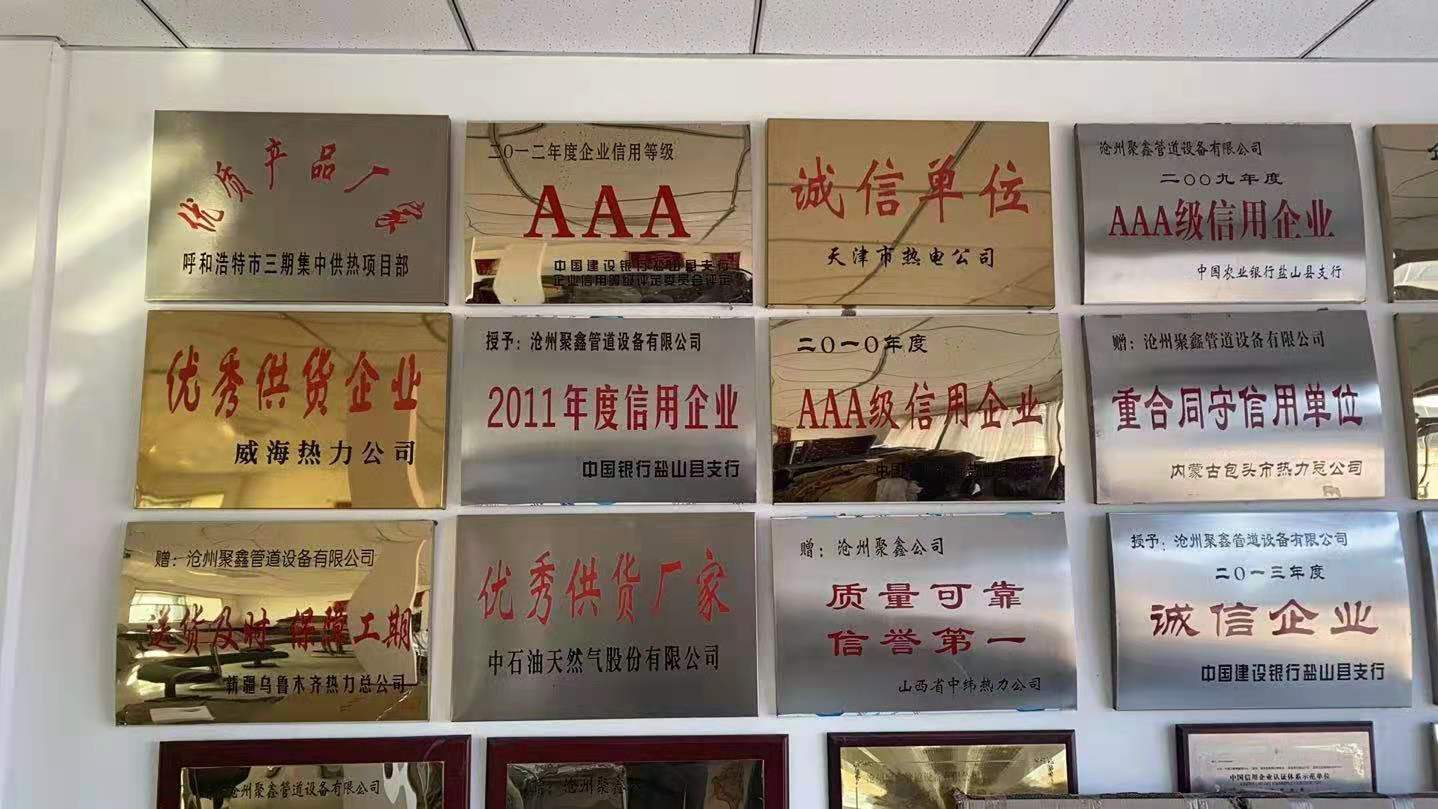 优质产品厂家
呼和浩特市三期集中供热项目部
二〇一二年度企业信用等级
AAA
中国建设银行盐山县支行
企业信用等级评定委员会评定
诚信单位
天津市热电公司
沧州聚鑫管道设备有限公司
二〇〇九年度
AAA级信用企业
中国农业银行盐山县支行
优秀供货企业
威海热力公司
授予：沧州聚鑫管道设备有限公司
2011年度信用企业
中国银行盐山县支行
二〇一〇年度
AAA级信用企业
赠：沧州聚鑫管道设备有限公司
重合同守信用单位
内蒙古包头市热力总公司
赠：沧州聚鑫管道设备有限公司
送货及时 保障工期
新疆乌鲁木齐热力总公司
优秀供货厂家
中石油天然气股份有限公司
赠：沧州聚鑫公司
质量可靠
信誉第一
山西省中纬热力公司
授予：沧州聚鑫管道设备有限公司
二〇一三年度
诚信企业
中国建设银行盐山县支行
沧州聚鑫管道设备有限公司
赠：沧州聚鑫
中国信用企业认证体系示范单位